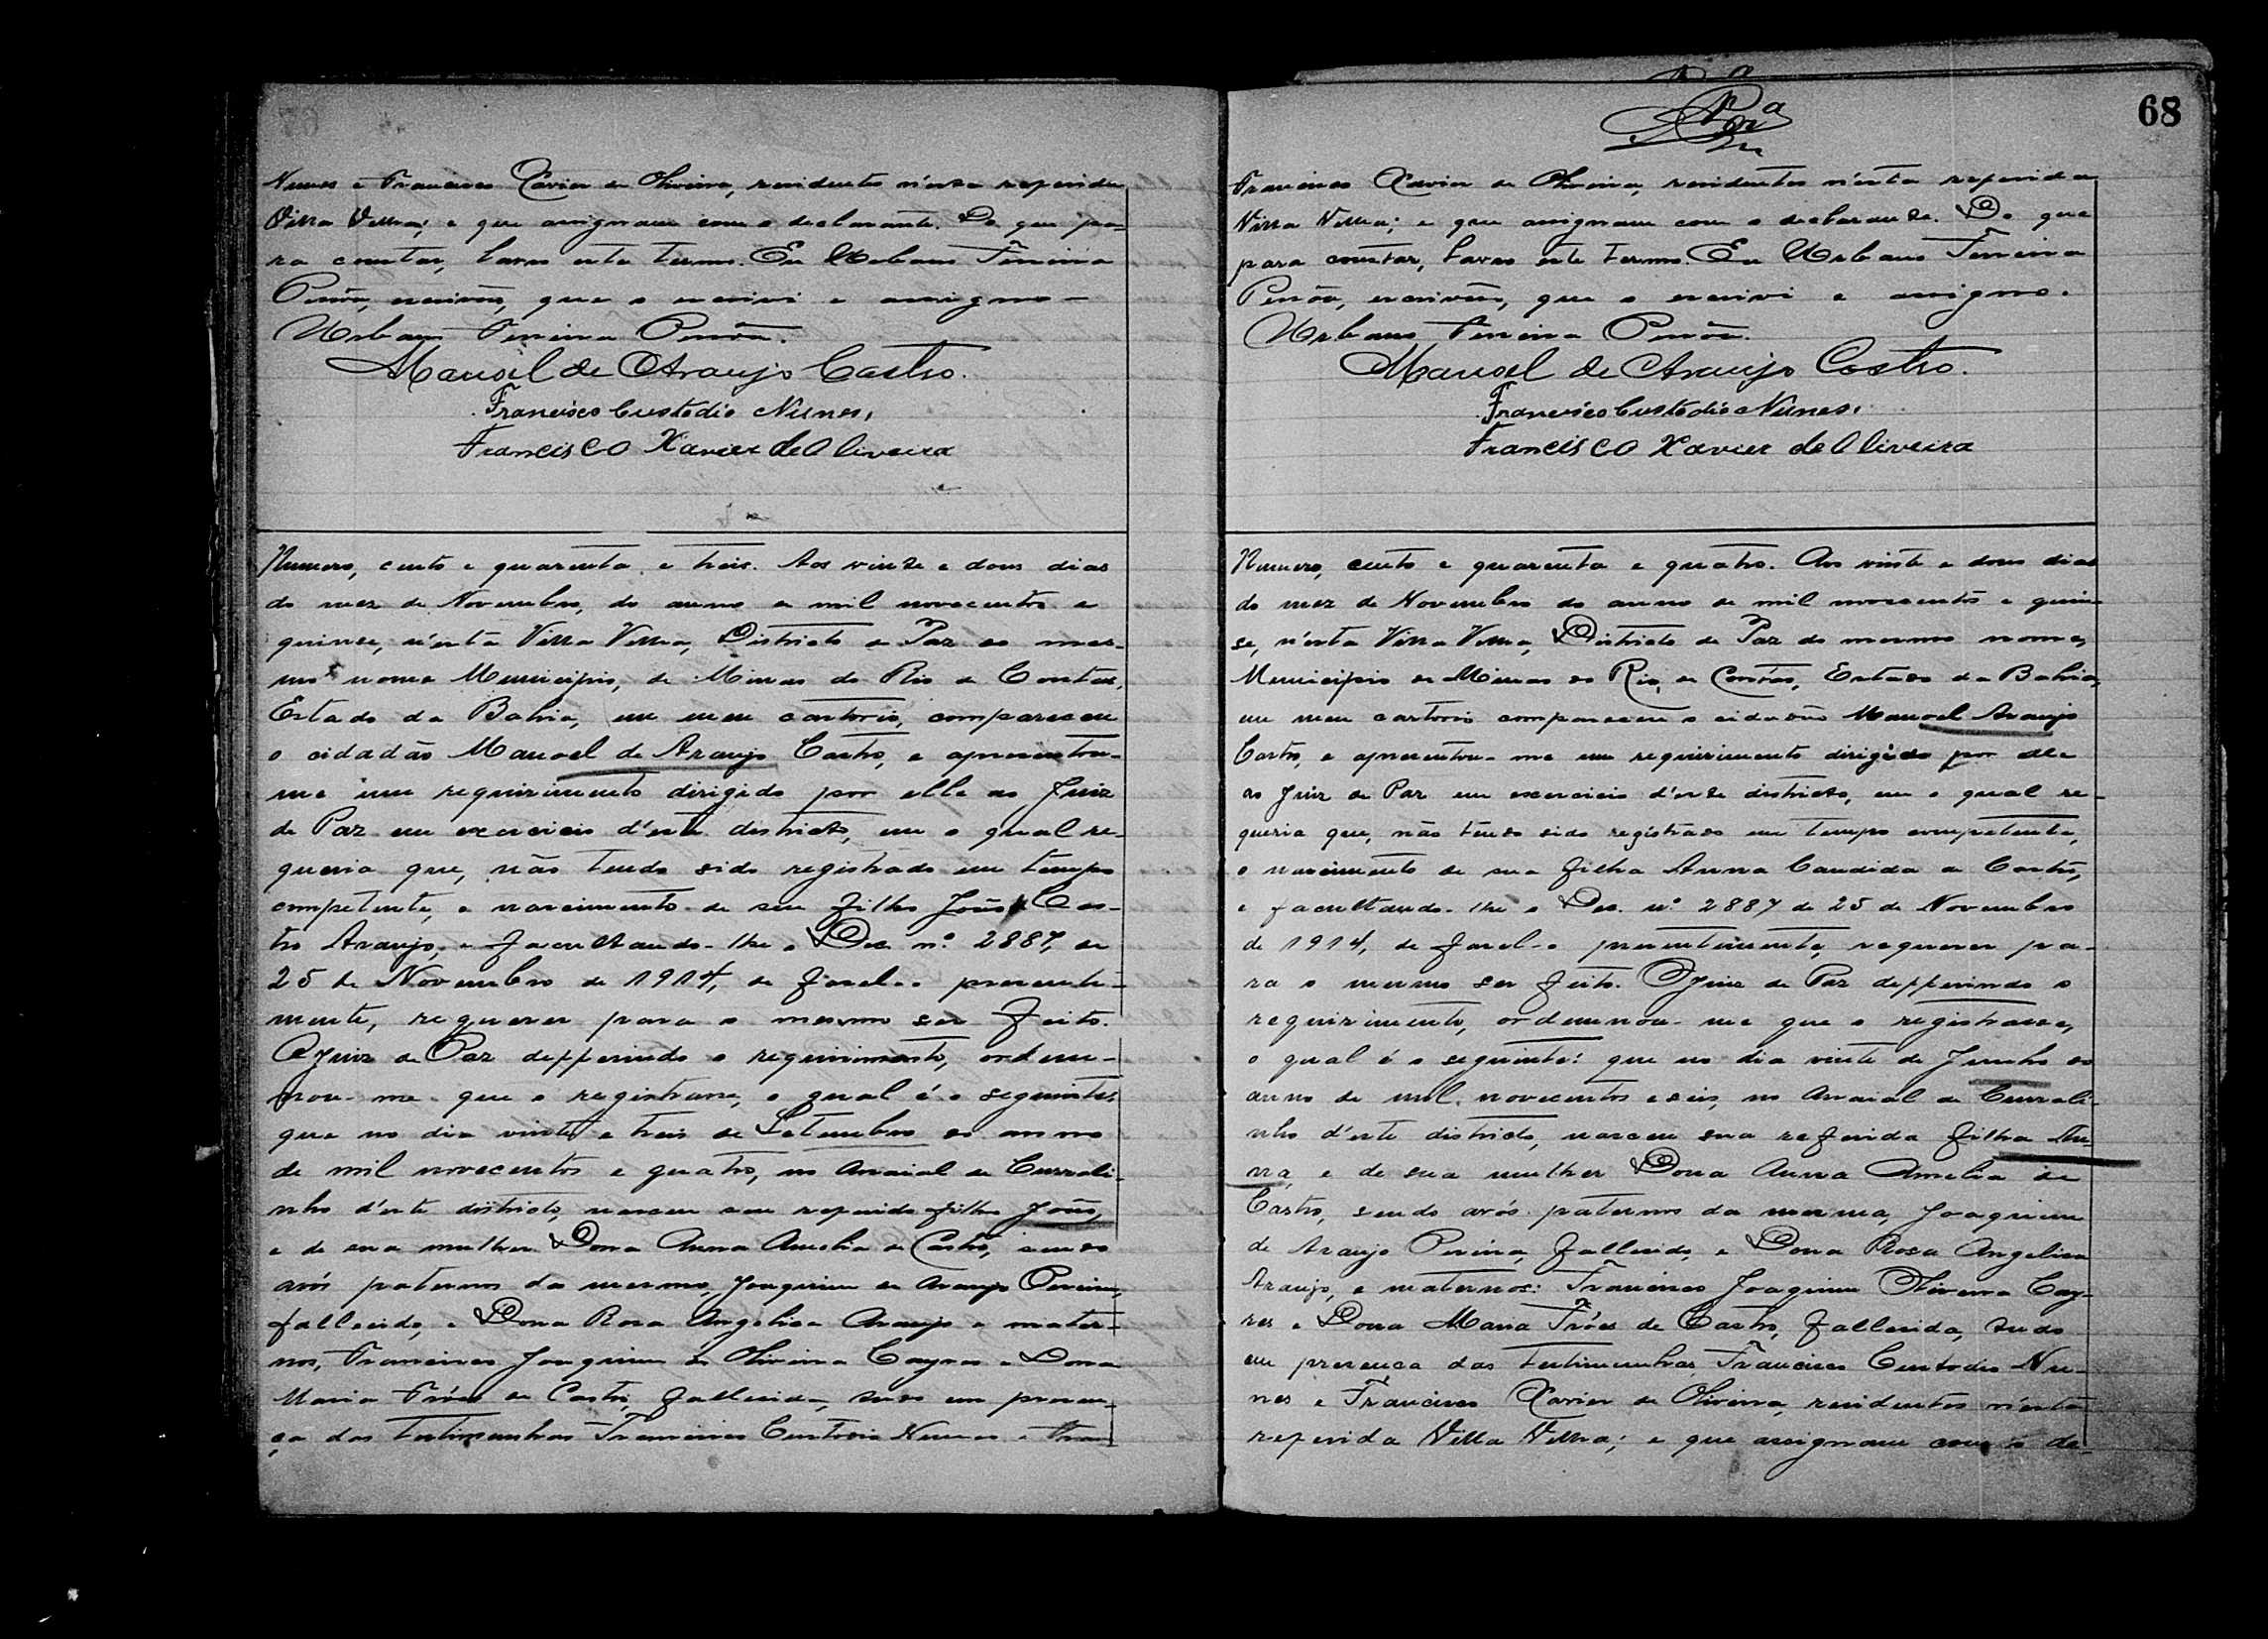 Nunes e Francisco Xavier de Oliveira, residentes n'esta referida
Villa Velha; e que assignam com o declarante. Do que pa-
ra constar, lavro este termo. Eu Urbano Ferreira
escrivão, que o escrivi e assigno-
Urbano Ferreira
Manoel de Araujo Castro.
Francisco Custodio Nunes.
Francisco Xavier de Oliveira
Numero, cento e quarenta e treis. Aos vinte e dous dias
do mez de Novembro, do anno de mil novecentos e
quinse, n'esta Villa Velha, Districto de Paz do mes-
mo nome Municipio, de Minas do Rio de Contas,
Estado da Bahia, em meu cartorio, compareceu
o cidadão Manoel de Araujo Castro, e apresentou-
me um requirimento dirigido por elle ao Juiz
de Paz em exercicio d'este districto, em o qual re-
queria que, não tendo sido registrado em tempo
competente, o nascimento de seu filho João Cas-
tro Araujo, e facultando-lhe o Dec. nº 2887, de
25 de Novembro de 1914, de fasel-o presente-
mente, requerer para o mesmo ser feito.
O Juiz de Paz defferindo o requirimento, ordem-
nou-me que o registrasse, o qual é o seguinte:
que no dia vinte e treis de Setembro do anno
de mil novecentos e quatro, no Arraial de Currali-
nho d'este districto, nasceu seu referido filho João,
e de sua mulher Dona Anna Amelia de Castro, sendo
avós paternos do mesmo, Joaquim de Araujo Pereira,
fallecido, e Dona Rosa Angelica Araujo e mater-
nos, Francisco Joaquim de Oliveira Cayres e Dona
Maria Fróes de Castro, fallecida, tudo em presen-
ça das testimunhas Francisco Custodio Nunes e Fran-
68
Francisco Xavier de Oliveira, residentes n'esta referida
Villa Velha; e que assignam com o declarante. Do que
para constar, lavro este termo. Eu Urbano Ferreira
escrivão, que o escrivi e assigno.
Urbano Ferreira
Manoel de Araujo Castro.
Francisco Custodio Nunes.
Francisco Xavier de Oliveira
Numero, cento e quarenta e quatro. Aos vinte e dous dias
do mez de Novembro do anno de mil novecentos e quin-
se, n'esta Villa Velha, Districto de Paz do mesmo nome,
Municipio de Minas do Rio de Contas, Estado da Bahia,
em meu cartorio compareceu o cidadão Manoel Araujo
Castro, e apresentou-me um requirimento dirigido por elle
ao Juiz de Paz em exercicio d'este districto, em o qual re-
queria que, não tendo sido registrado em tempo competente,
o nascimento de sua filha Anna Candida de Castro,
e facultando-lhe o Dec. nº 2887 de 25 de Novembro
de 1914, de fasel-o presentemente, requerer pa-
ra o mesmo ser feito. O Juiz de Paz defferindo o
requirimento, ordemnou-me que o registrasse,
o qual é o seguinte: que no dia vinte de Junho do
anno de mil novecentos e seis, no Arraial de Currali-
nho d'este districto, nasceu sua referida filha An-
na, e de sua mulher Dona Anna Amelia de
Castro, sendo avós paternos da mesma, Joaquim
de Araujo Pereira, fallecido, e Dona Rosa Angelica
Araujo, e maternos: Francisco Joaquim Oliveira Cay-
res e Dona Maria Fróes de Castro, fallecida, tudo
em presença das testimunhas Francisco Custodio Nu-
nes e Francisco Xavier de Oliveira, residentes n'esta
referida Villa Velha; e que assignam com o de-